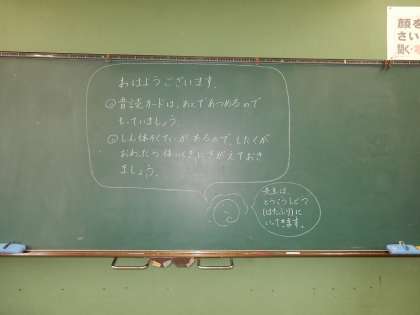 おはようございます。
音読カードは、あとであつめるので
もっていましょう。
しん体そくていがあるので、したくが
おわったら体いくぎにきがえておき
ましょう。
先生は、
とうこうしどう
(はたふり)に
いってきます。
顔を
さい
聞く・